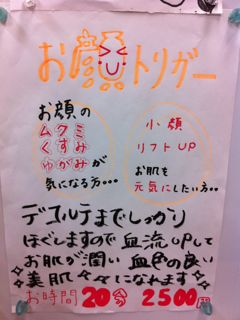 お顔トリガー
お顔の
ムクミ
くすみ
ゆがみが
気になる方・・・
小顔
リフトUP
お肌も
元気にしたい方・・
デコルテまでしっかり
ほぐしますので血流UPして
お肌が潤い血色の良い
美肌々々になれます
お時間20分2500円